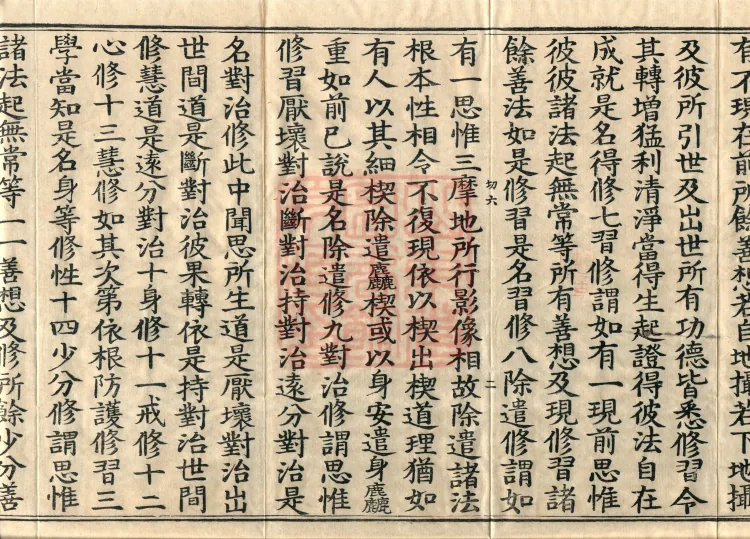 有不現在前所餘善想若自地攝若下地攝
及彼所引世及出世所有功德皆悉修習令
其轉增猛利清淨當得生起證得彼法自在
成就是名得修七習修謂如有一現前思惟
彼彼諸法起無常等所有善想及現修習諸
餘善法如是修習是名習修八除遣修謂如
切六
二
有一思惟三摩地所行影像相故除遣諸法
根本性相令不復現依以楔出楔道理猶如
有人以其細楔除遣麤楔或以身安遣身麤
重如前已說是名除遣修九對治修謂思惟
修習厭壞對治斷對治持對治遠分對治是
名對治修此中聞思所生道是厭壞對治出
世間道是斷對治彼果轉依是持對治世間
修慧道是遠分對治十身修十一戒修十二
心修十三慧修如其次第依根防護修習三
學當知是名身等修性十四少分修謂思惟
諸法起無常等一一善想及修所餘少分善